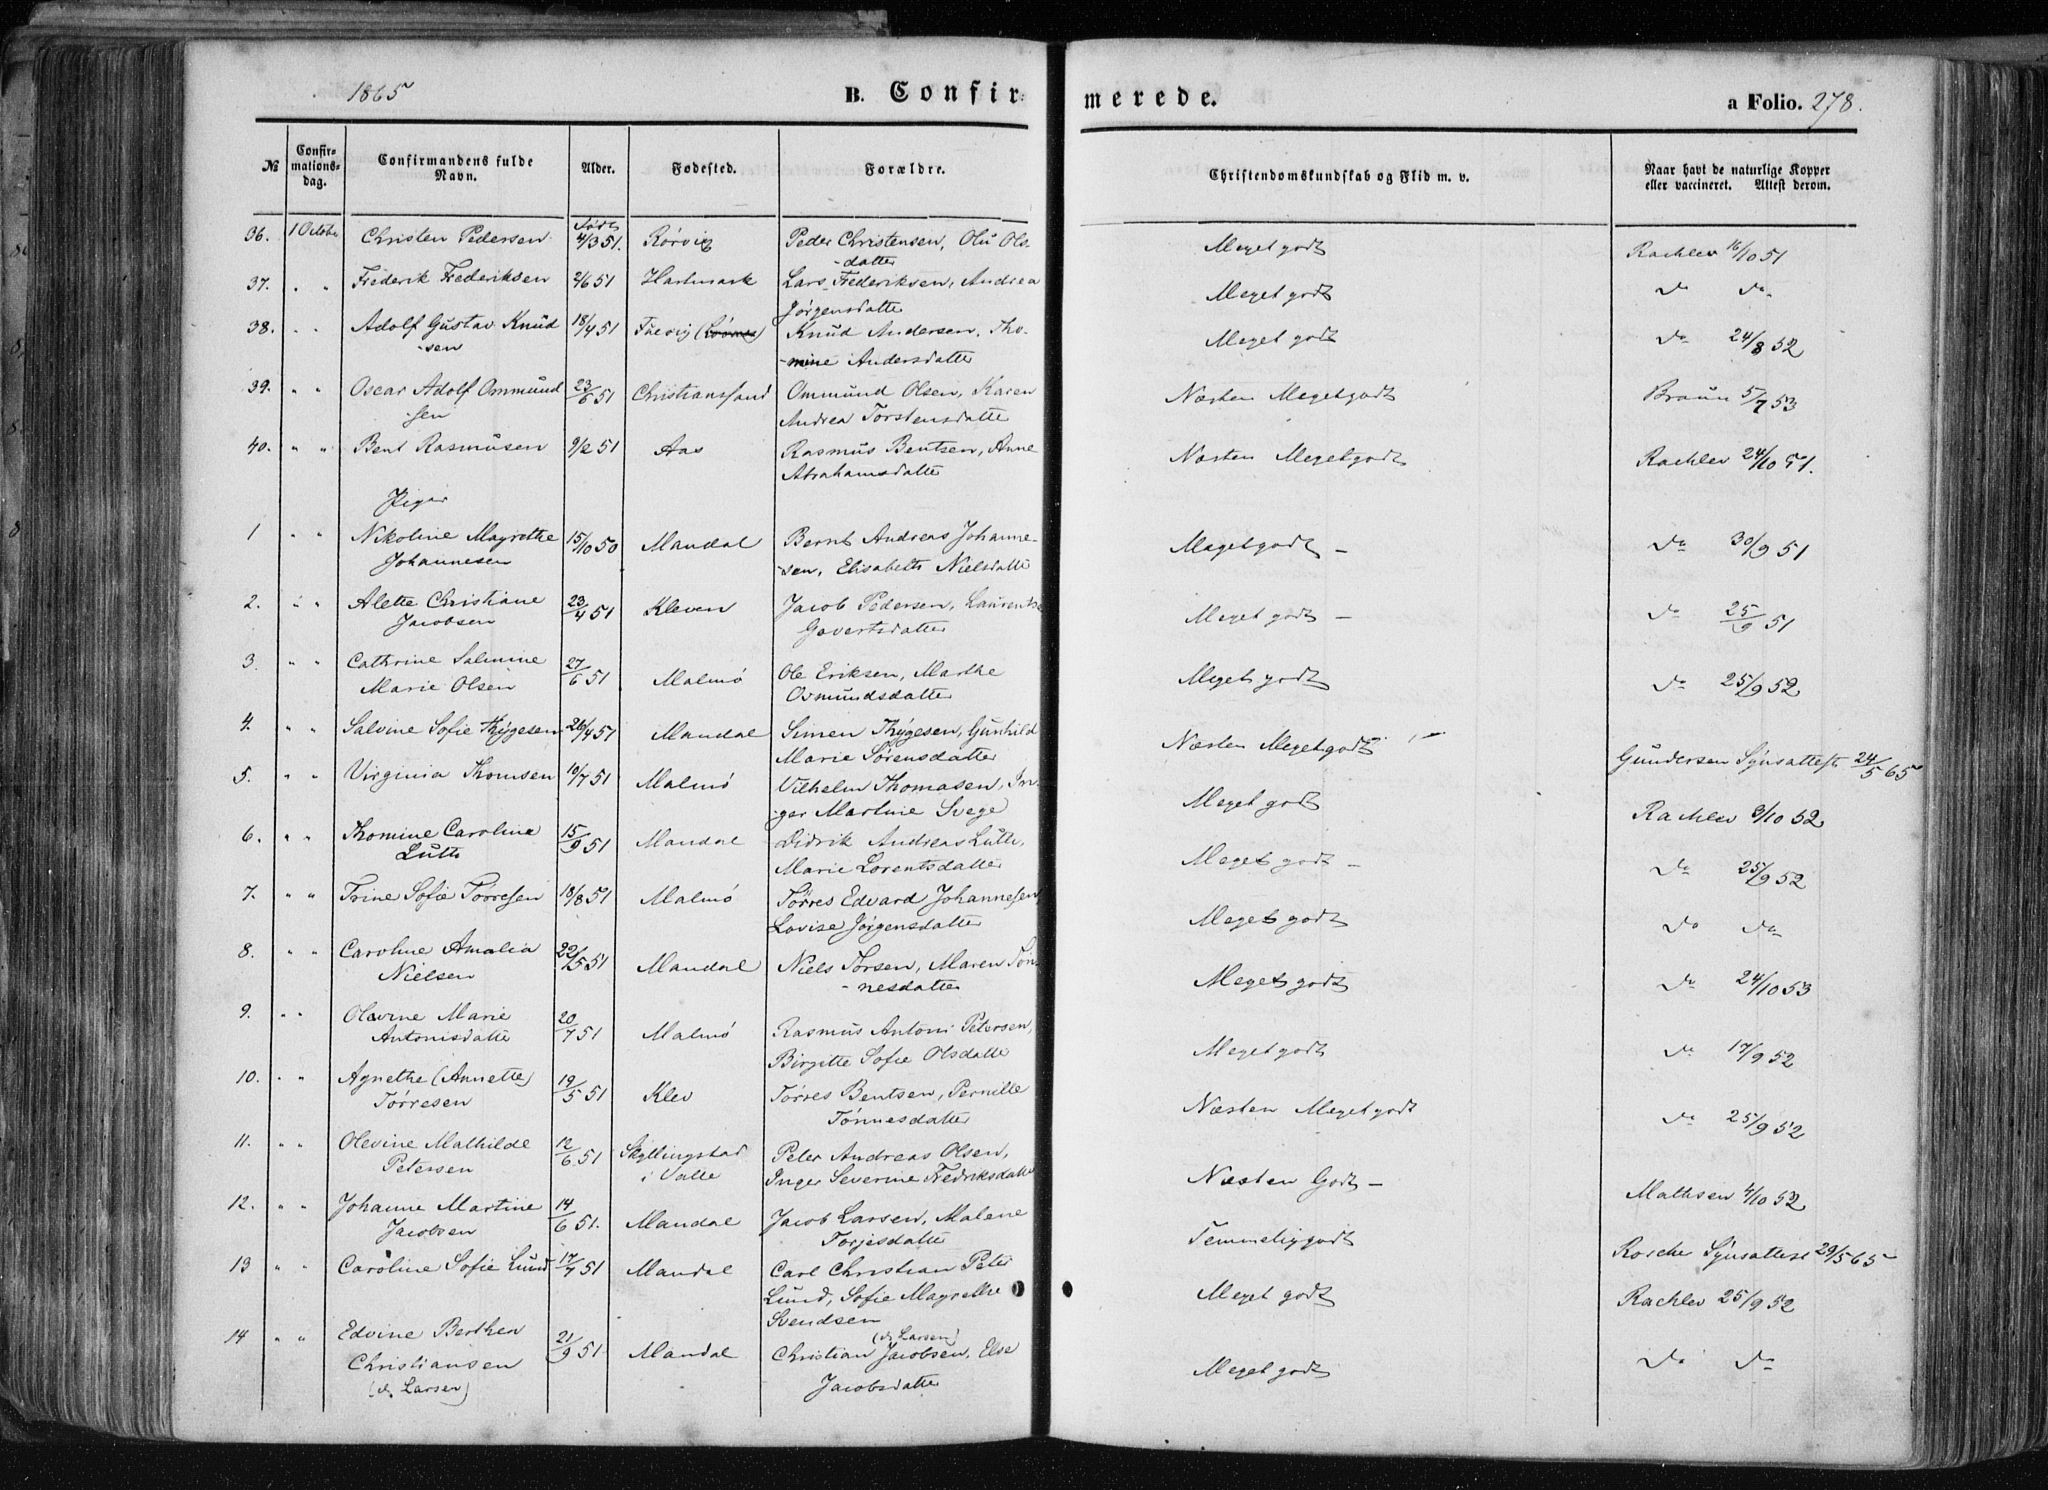 1865 B. Confirmerede. a Folio. 278.
№ Confirmationsdag. Confirmandens fulde Navn. Alder. Fødested. Forældre. Christendomskundskab og Flid m. v. Naar havt de naturlige Kopper eller vaccineret. Attest derom.
36. 1 October Christen Pedersen født 4/3 51. Rørvig Peder Christensen, Ols- Meget godt Rachlev 16/10 51
-datter
37. " " Frederik Frederiksen 2/6 51 Hartmark Lars Frederiksen, Andrea Meget godt do do
Jørgensdatter
38. " " Adolf Gustav Knud 18/4 51 Knud Andersen, Tho- Meget godt do 24/8 52
-sen -mine Andersdatter
39. " " Oscar Adolf Ommund 23/6 51 Christianssand Ommund Olsen, Karen Næsten Megetgodt Braun 5/7 53
-sen Andrea Torstensdatter
40. " " Bent Rasmusen 9/2 51 Aas Rasmus Bentsen, Anne Næsten Megetgodt Rachlev 24/10 51.
Abrahamsdatter
Piger
1 " " Nikoline Magrethe 15/10 50 Mandal Bernt Andreas Johanne- Megetgodt – do 30/9 51
Johannesen -sen, Elisabeth Nielsdatter
2. " " Alette Christiane 23/4 51 Kleven Jacob Pedersen, Laurentse Meget godt – do 25/9 51
Jacobsen Govertsdatter
3. " " Cathrine Salmine 27/6 51 Malmø Ole Eriksen, Marthe Meget godt do 25/9 52
Marie Olsen Osmundsdatter
4. " " Salvine Sofie Thÿgesen 26/4 51 Mandal Simen Thÿgesen, Gunhild Næsten Megetgodt Gundersen Synsattest 24/5 65
Marie Sørensdatter
5. " " Virginia Thomsen 10/7 51 Malmø Vilhelm Thomasen, In- Meget godt Rachlev 3/10 52
-ger Martine Svege
6. " " Thomine Caroline 15/9 51 Mandal Didrik Andreas Lütt, Meget godt – do 25/9 52
Lütt Marie Lorentsdatter
7. " " Trine Sofie Tørresen 18/8 51 Malmø Tørres Edvard Johannesen, Meget godt do do
Lovise Jørgensdatter
8. " " Caroline Amalia 22/5 51 Mandal Niels Torsen, Maren Tøn- Meget godt do 24/10 53
Nielsen -nesdatter
9. " " Olavine Marie 20/7 51 Malmø Rasmus Antoni Petersen, Meget godt do 17/9 52
Antonisdatter Birgitte Sofie Olsdatter
10. " " Agnethe (Annette) 19/5 51 Klev Tørres Bentsen, Pernille Næsten Megetgodt do 25/9 52
Tørresen Tønnesdatter
11. " " Olevine Mathilde 12/6 51 Skyllingstad Peter Andreas Olsen, Næsten Godt – Mathsen 4/10 52
Petersen i Valle Inger Severine Fredriksdatter
12. " " Johanne Martine 14/6 51. Mandal Jacob Larsen, Malene Temmeliggodt Rosche Synsattest 29/5 65
Jacobsen Torjesdatter
13 " " Caroline Sofie Lund 17/7 51 Mandal Carl Christian Peter Meget godt Rachlev 25/9 52
Lund, Sofie Magrethe
Svendsen
14 " " Edvine Berthea 21/9 51 Mandal (d. Larsen) Christian Jacobsen, Else Meget godt do do
Christiansen Jacobsdatter
(d. Larsen)